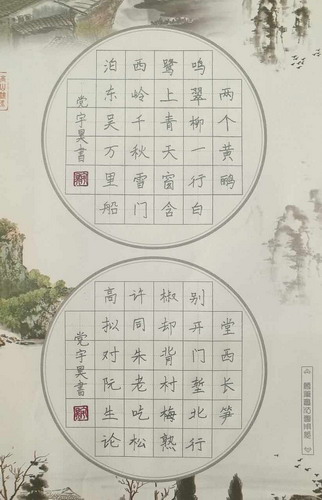 两个黄鹂
鸣翠柳一行白
鹭上青天窗含
西岭千秋雪门
泊东吴万里船
党宇昊书
堂西长笋
别开门堑北行
椒却背村梅熟
许同朱老吃松
高拟对阮生论
党宇昊书